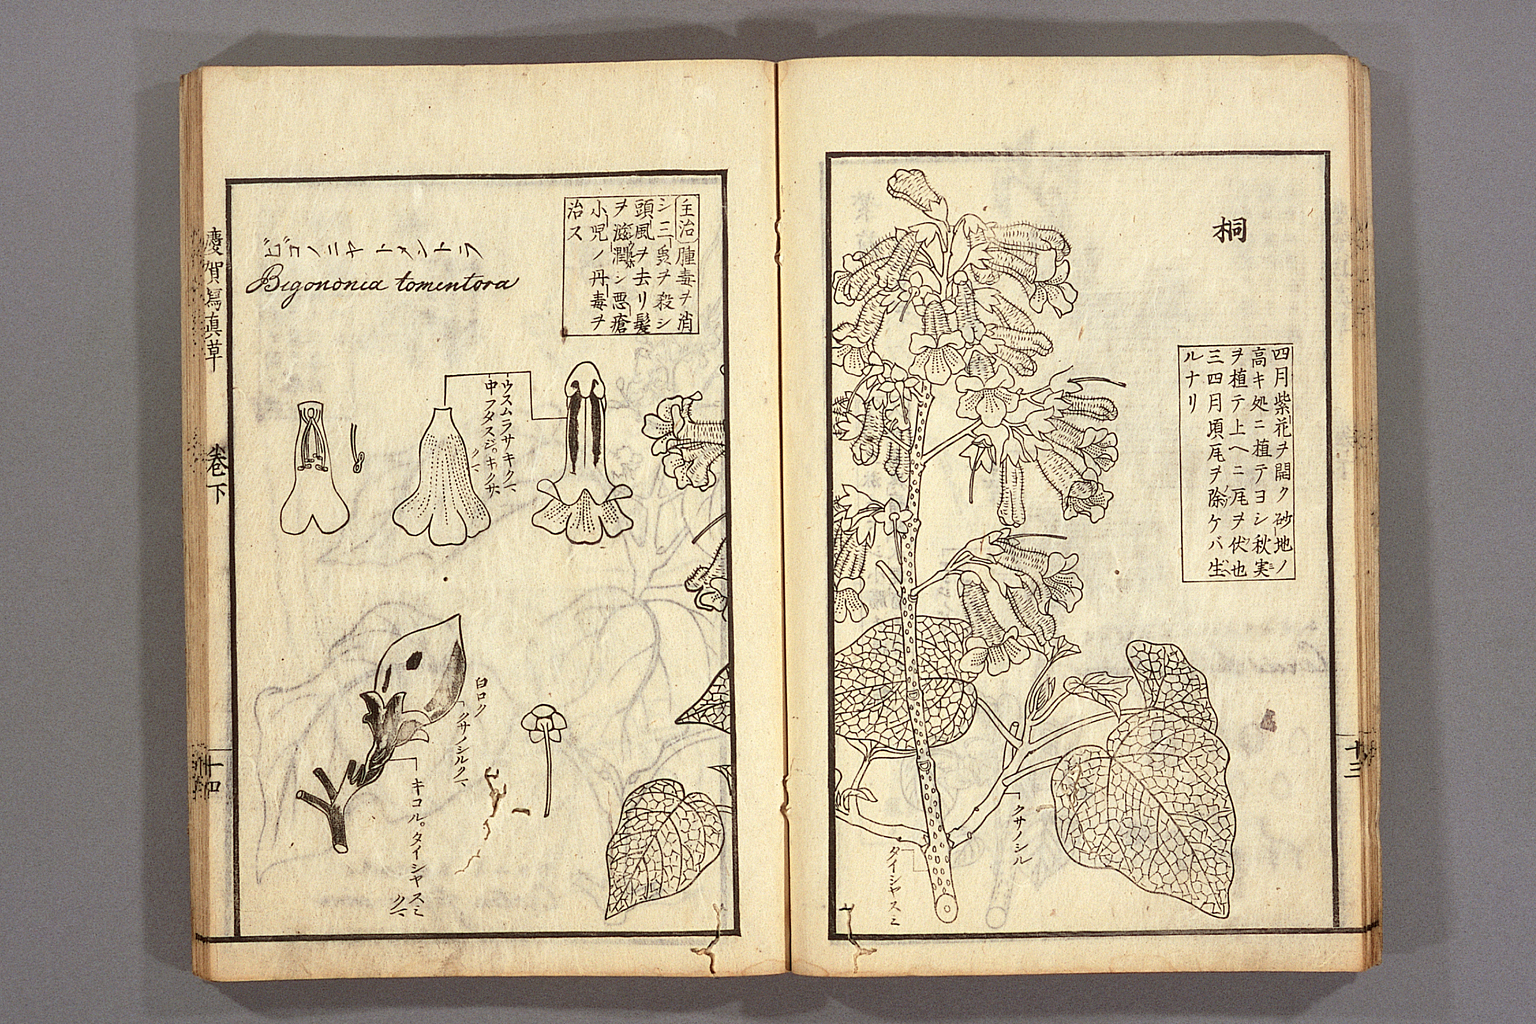 桐
四月紫花ヲ開ク砂地ノ
高キ処ニ植テヨシ秋実
ヲ植テ上ヘニ尾ヲ伏也
三四月頃尾ヲ除ケバ生
ルナリ
クサノシル
タイシヤスミ
十三
主治腫毒ヲ消
シ三虫ヲ殺シ
頭風ヲ去リ髪
ヲ滋潤シ悪瘡
小児ノ丹毒ヲ
治ス
ビゴノニヤトメントラ
Bigononia tomentora
ウスムラサキクマ
中フタスジ。キクサ
クマ
白ロク
クサノシルクマ
キコル。タイシヤスミ
クマ
慶賀寫真草
卷下
十四